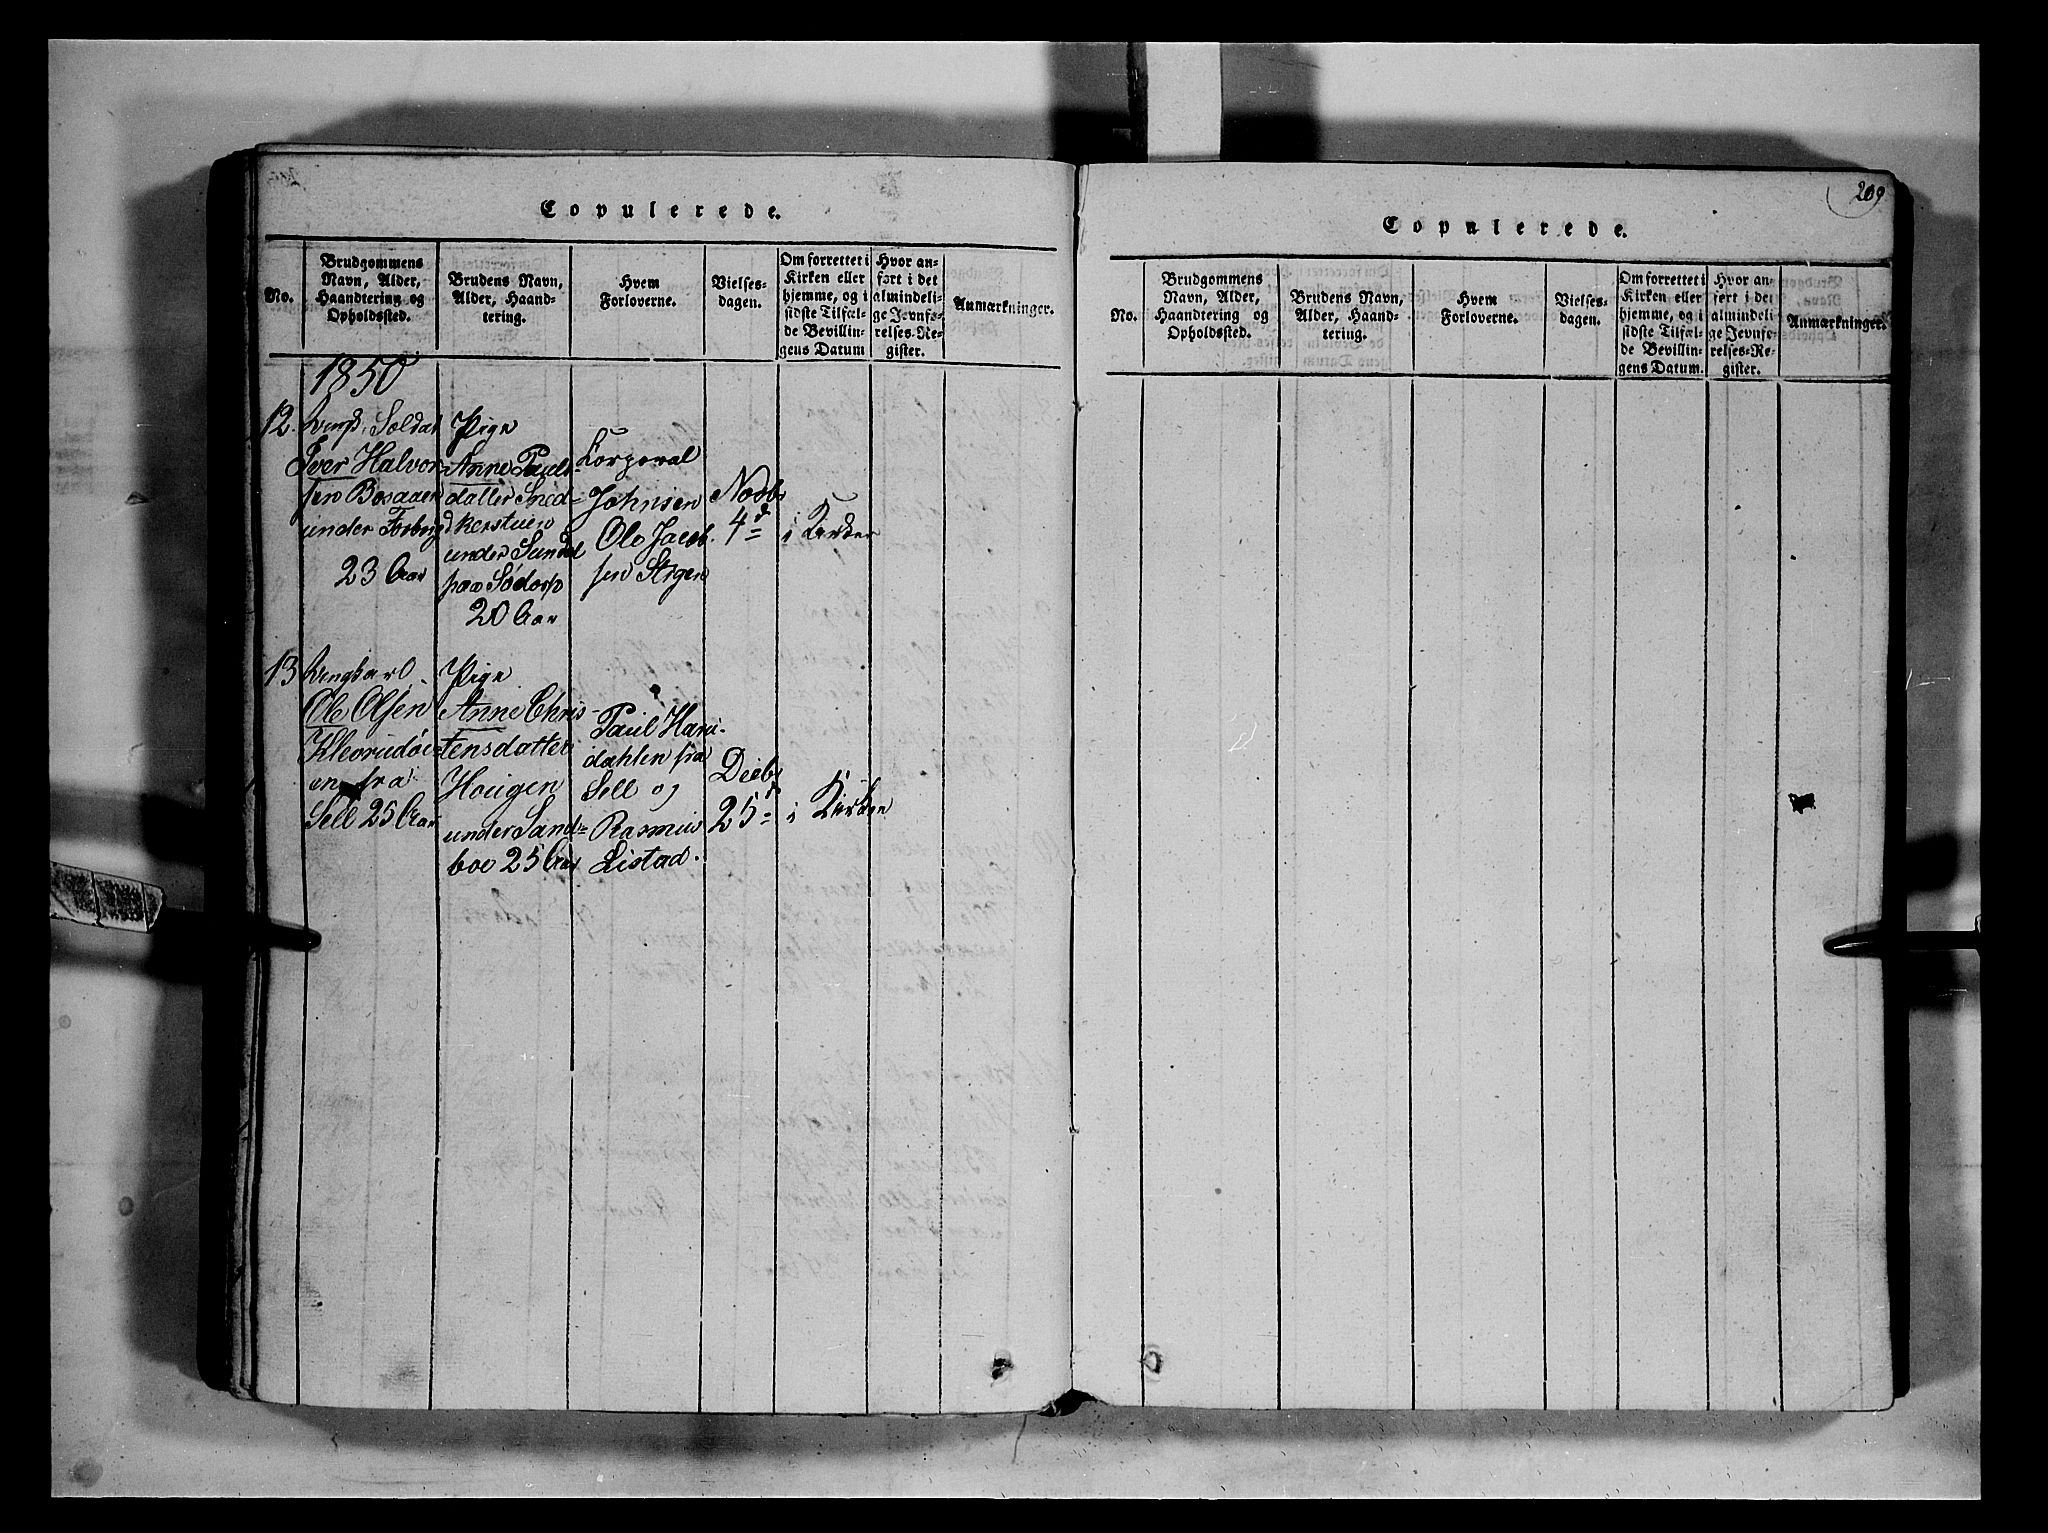 Copulerede.
No.
Brudgommens
Navn, Alder,
Haandtering og
Opholdssted.
Brudens Navn,
Alder, Haand-
tering.
Hvem
Forloverne.
Vielses-
dagen.
Om forrettet i
Kirken eller
hjemme, og i
sidste Tilfæl-
de Bevillin-
gens Datum
Hvor an-
ført i det
almindeli-
ge Jevnfø-
relses-Re-
gister.
Anmærkninger.
1850
12.
Soldat
Iver Halvor-
sen Bosaaen
under Forbrigd
23 Aar
Pige
Anne Pauls-
datter Sned-
kerstuen
under Sundel
paa Sødorp
20 Aar
Korporal
Johnsen
Ole Jacob-
sen Stigen
Novbr
4d
i Kirken
13
Ungkarl
Ole Olsen
en fra
Sell 25 Aar
Pige
Anne Chris-
tensdatter
Hougen
under Sand-
boe 25 Aar
Paul Haru-
dahlen fra
Sell og
Rasmus
Listad.
Decbr
25d
i Kirken
209
Copulerede.
No.
Brudgommens
Navn, Alder,
Haandtering og
Opholdssted.
Brudens Navn,
Alder, Haand-
tering.
Hvem
Forloverne.
Vielses-
dagen.
Om forrettet i
Kirken eller
hjemme, og i
sidste Tilfæl-
de Bevillin-
gens Datum.
Hvor an-
ført i det
almindeli-
ge Jevnfø-
relses-Re-
gister.
Anmærkninger.